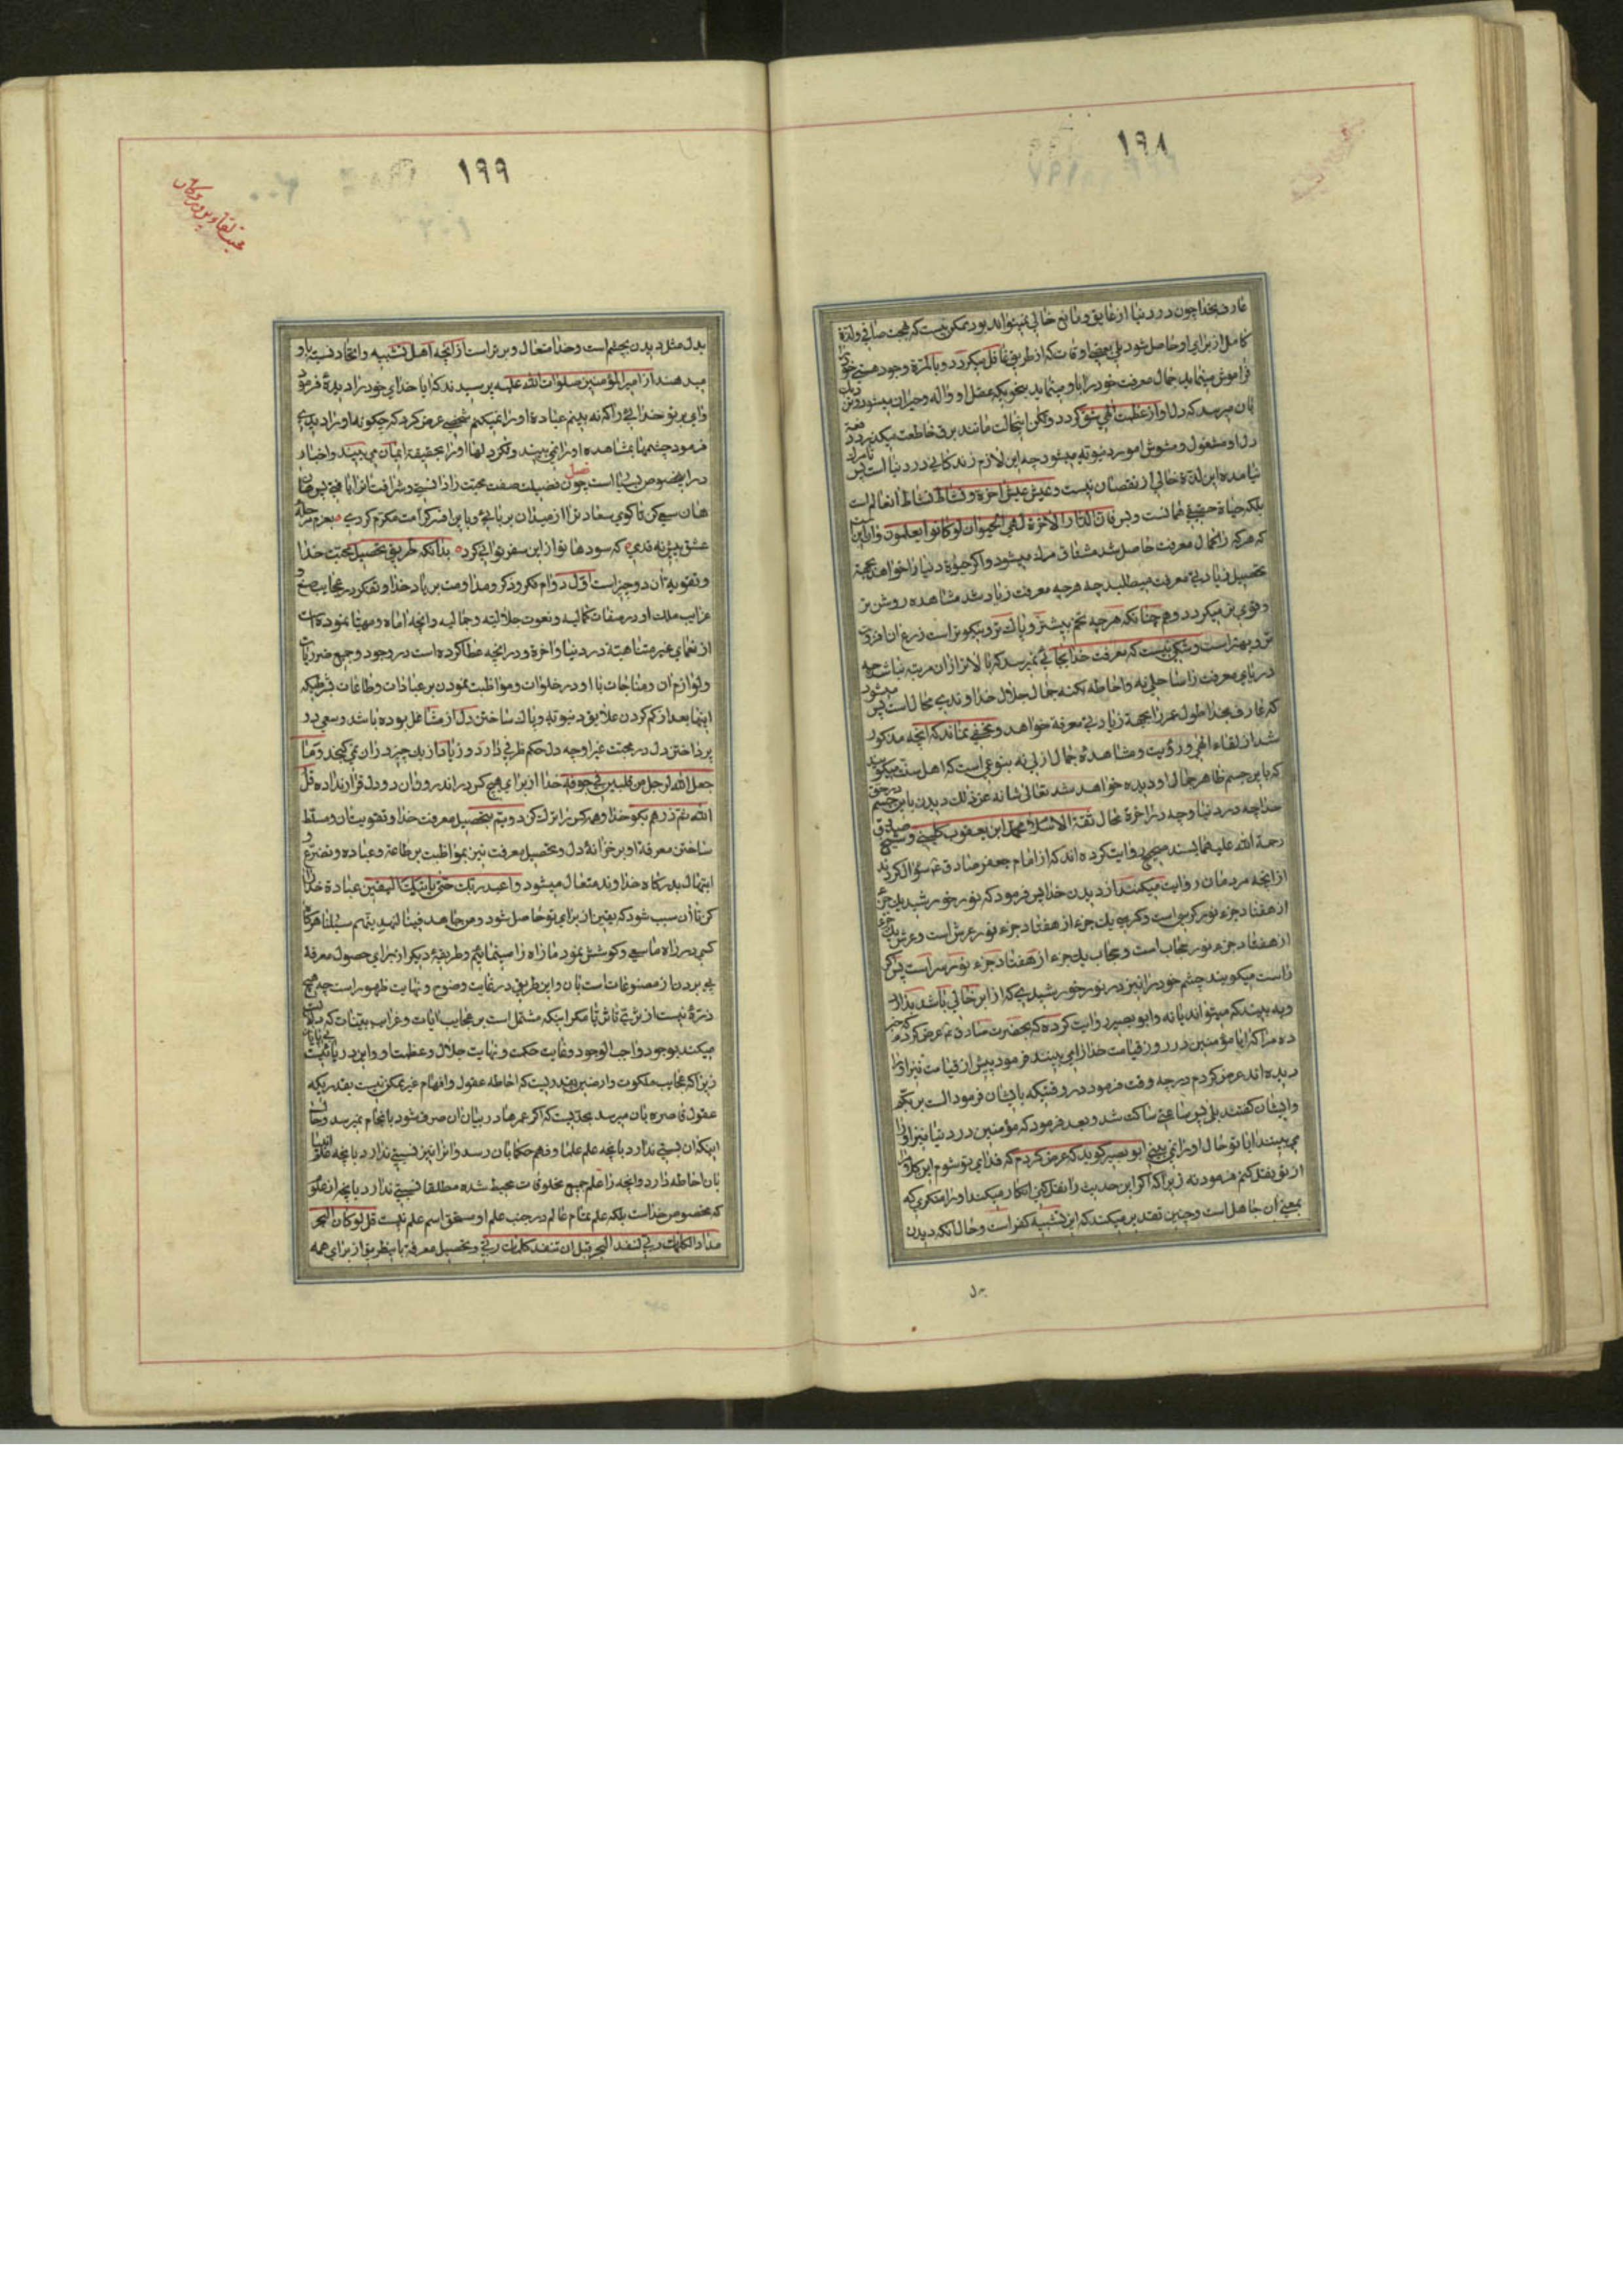 ١٩٨
عارف بخدا چون در دنیا از عایق و مانع خالی نمیتواند بود ممکن نیست که محبت صافی و لذة
کامل از برای او حاصل شود بلی بعضی اوقات که از طریق غافل میکردد و بالمرة وجود هستی خود را
فراموش مینماید جمال معرفت خود را باو مینماید بنحویکه عقل او واله و حیران میشود و نزدیک
بان میرسد که دل او از عظمت الهی شق کردد ولکن اینحالت مانند برق خاطفست میکذرد دفعة
دل او مشغول و مشوش امور دنیویه میشود چه این لازم زندکانی در دنیا است پس تا مرک
نیامده این لذة خالی از نقصان نیست و عیش عیش اخرة و نشاط نشاط انعالم است
بلکه حیاة حقیقی همانست و بس فان الدار الاخرة لهی الحیوان لو کانوا یعلمون و از این
که هر که را کمال معرفت حاصل شد مشتاق مرک میشود و اکر حیوة دنیا را خواهد بجهة
تحصیل زیادتی معرفت میطلبد چه هر چه معرفت زیاد شد مشاهده روشن تر
و قوی تر میکردد و همچنانکه هر چه تخم بیشتر و پاک تر و نیکوتر است زرع ان افزون
تر و بهتر است و شکی نیست که معرفت خدا بجائی نمیرسد که بالاتر از ان مرتبه نباشد چه
دریای معرفت را ساحلی نه و احاطه بکنه جمال جلال خداوندی محال است پس میشود
که عارف بخدا طول عمر را بجهة زیادتی معرفة خواهد و مخفی نماند که انچه مذکور
شد از لقاء الهی و رؤیت و مشاهده جمال ازلی نه بنوعی است که اهل سنت میکویند
که باین جسم ظاهر جمال او دیده خواهد شد تعالی شانه عن ذلک دیدن باین جسم در حق
خدا چه در دنیا و چه در اخرة محال ثقة الاسلام محمد ابن یعقوب کلینی و شیخ صدوق
رحمة الله علیهما بسند صحیح روایت کرده اند که از امام جعفر صادق ع سؤال کردند
از انچه مردمان روایت میکنند از دیدن خدا پس فرمود که نور خورشید یک جزء
از هفتاد جزء نور کرسی است و کرسی یک جزء از هفتاد جزء نور عرش است و عرش یک جزء
از هفتاد جزء نور حجاب است و حجاب یک جزء از هفتاد جزء نور ستر است پس اکر
راست میکویند چشم خود را نیز در نور خورشیدی که از ابر خالی باشد بدارند
و به بینند که میتوانند یا نه و ابو بصیر روایت کرده که بحضرت صادق ع عرض کردم که خبر
ده مرا که ایا مؤمنین در روز قیامت خدا را می بینند فرمود پیش از قیامت نیز او را
دیده اند عرض کردم در چه وقت فرمود در وقتیکه بایشان فرمود الست بربکم
و ایشان کفتند بلی پس ساعتی ساکت شد و بعد فرمود که مؤمنین در دنیا نیز او را
می بینند ایا تو حال او را نمی بینی ابو بصیر کوید که عرض کردم که فدای تو شوم این کلام را
از تو نقل کنم فرمود نه زیرا که اکر این حدیث را نقل کنی انکار میکند او را منکری که
بمعنی ان جاهل است و چنین تقدیر میکند که این تشبیه کفر است و حال انکه دیدن
بدل
١٩٩
بدل مثل دیدن بچشم است و خدا متعال و برتر است از انچه اهل تشبیه و الحاد نسبت باو
میدهند از امیر المؤمنین صلوات الله علیه پرسیدند که ایا خدای خود را دیدهٔ فرمود
وای بر تو خدائی را که نه بینم عبادة او را نمیکنم شخصی عرض کرد که چکونه او را دیدی
فرمود چشمها بمشاهده او را نمی بینند ولکن دلها او را بحقیقة ایمان می بینند و اخبار
در این خصوص بسیار است فصل چون فضیلت صفت محبت را دانستی و شرافت انرا یافتی پس هان
هان سعی کن تا کوی سعادت را از میدان بربائی و باین افسر کرامت مکرم کردی بعزم مرحله
عشق پیش نه قدمی که سودها توان این سفر توانی کرد بدانکه طریق تحصیل محبت خدا
و تقویه ان دو چیز است اول دوام فکر و ذکر و مداومت بر یاد خدا و تفکر در عجایب صنع و
غرایب ملک او در صفات کمالیه و نعوت جلالیه و جمالیه و انچه اماده و مهیا نموده است
از نعمای غیر متناهیة در دنیا و اخرة و در انچه عطا کرده است در وجود و جمیع ضروریات
و لوازم ان و مناجات با او در خلوات و مواظبت نمودن بر عبادات و طاعات بشرطیکه
اینها بعد از کم کردن علایق دنیویه و پاک ساختن دل از مشاغل بوده باشد و سعی در
پرداختن دل در محبت غیر او چه دل حکم ظرفی دارد و زیاد از یک چیز در ان نمی کنجد و ما
جعل الله لرجل من قلبین فی جوفه خدا از برای هیچ کس در اندرون ان دو دل قرار نداده قل
الله ثم ذرهم بکو خدا و هر کس را ترک کن دویم تحصیل معرفت خدا و تقویت ان و مسلط
ساختن معرفة او بر خزانهٔ دل و تحصیل معرفت نیز بمواظبت بر طاعة و عباده و تضرع و
ابتهال بدرکاه خداوند متعال میشود و اعبد ربک حتی یاتیک الیقین عبادة خدا را
کن تا ان سبب شود که یقین از برای تو حاصل شود و من جاهد فینا لنهدینهم سبلنا هر کاه
کسی در راه ما سعی و کوشش نمود ما راه را مینمائیم و طریقهٔ دیکر از برای حصول معرفة
پی بردن از مصنوعات است بان و این طریق در غایت وضوح و نهایت ظهور است چه هیچ
ذرهٔ نیست از ثری تا ثریا مکر اینکه مشتمل است بر عجایب ایات و غرایب بینات که دلالت
میکند بوجود واجب الوجود و غایت حکمت و نهایت جلال و عظمت او و این دریائیست بی پایان
زیرا که عجایب ملکوت و ارضین بحدیست که احاطه عقول و افهام غیر ممکن نیست بقدریکه
عقول قاصره بان میرسد بحدیست که اکر عمرها در بیان ان صرف شود بانجام نمیرسد و حال
اینکه ان نسبتی ندارد بانچه علم علما و فهم حکما بان رسد و انرا نیز نسبتی ندارد بانچه علم انبیا
بان احاطه دارد و انچه را علم جمیع مخلوقات محیط شده مطلقا نسبتی ندارد بانچه از علوم
که مخصوص خداست بلکه علم تمام عالم در جنب علم او مستحق اسم علم نیست قل لو کان البحر
مدادا لکلمات ربی لنفد البحر قبل ان تنفد کلمات ربی و تحصیل معرفة باین طریق از برای همه